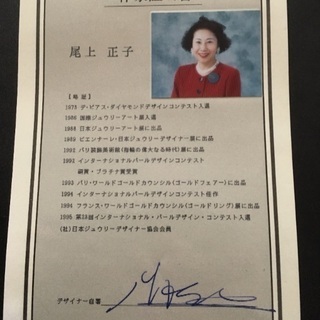 尾上 正子
【略歴】
1973 デ・ビアス・ダイヤモンドデザインコンテスト入選
1988 日本ジュウリーアート展に出品
1989 ビエンナーレ・日本ジュウリーデザイナー展に出品
1992 インターナショナルパールデザインコンテスト
銅賞・プラチナ賞受賞
1993 パリ・ワールドゴールドカウンシル(ゴールドフェアー)に出品
1994 インターナショナルパールデザインコンテスト佳作
1994 フランス・ワールドゴールドカウンシル(ゴールドリング)展に出品
インターナショナル・パールデザイン・コンテスト入選
(社)日本ジュウリーデザイナー協会会員
デザイナー自署